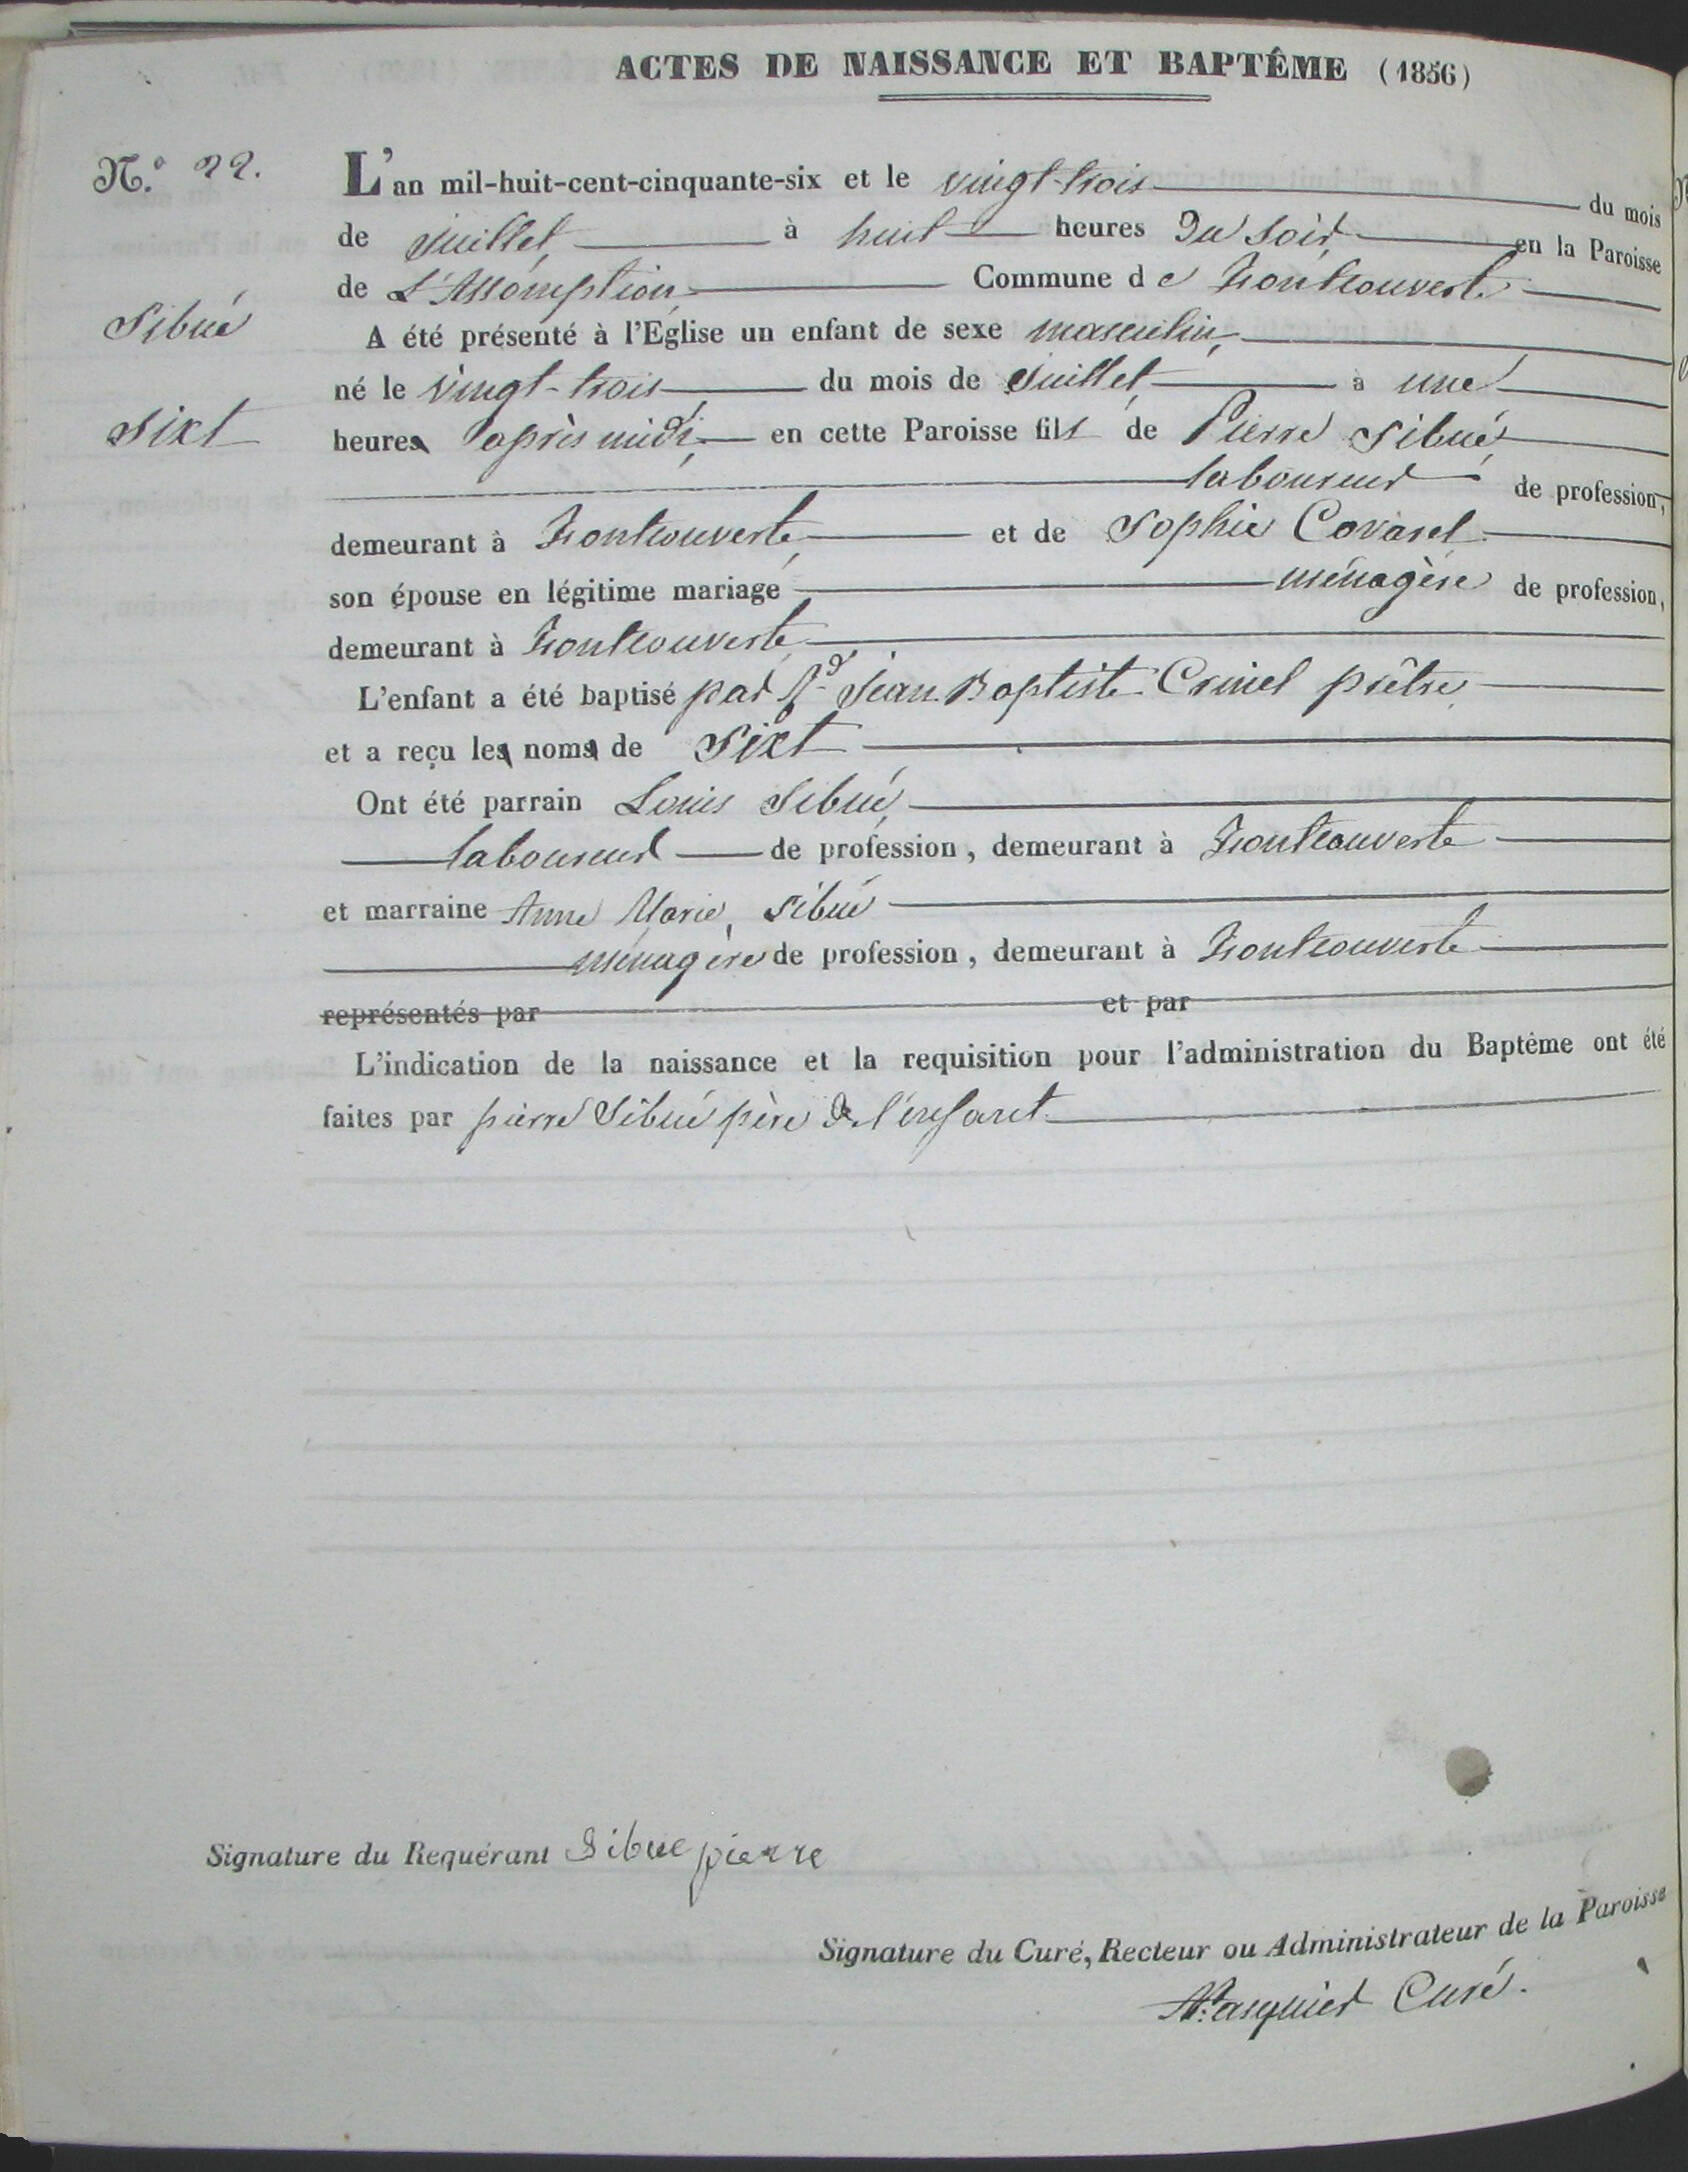 ACTES DE NAISSANCE ET BAPTÊME (1856)
N.º 22.
L'an mil-huit-cent-cinquante-six et le vingt-trois du mois
de juillet, à huit heures du soir en la Paroisse
de L'Assomption Commune de Fontcouverte
Sibué
A été présenté à l'Église un enfant de sexe masculin,
né le vingt-trois du mois de juillet, à une
Sixt
heure après midi, en cette Paroisse fils de Pierre Sibué,
laboureur de profession,
demeurant à Fontcouverte, et de Sophie Covarel
son épouse en légitime mariage ménagère de profession,
demeurant à Fontcouverte
L'enfant a été baptisé par Rd Jean Baptiste prêtre,
et a reçu le nom de Sixt
Ont été parrain Louis Sibué,
laboureur de profession, demeurant à Fontcouverte
et marraine Anne Marie, Sibué
ménagère de profession, demeurant à Fontcouverte
représentés par et par
L'indication de la naissance et la requisition pour l'administration du Baptême ont été
faites par pierre Sibué père de l'enfant
Signature du Requérant Sibue pierre
Signature du Curé, Recteur ou Administrateur de la Paroisse
Curé.